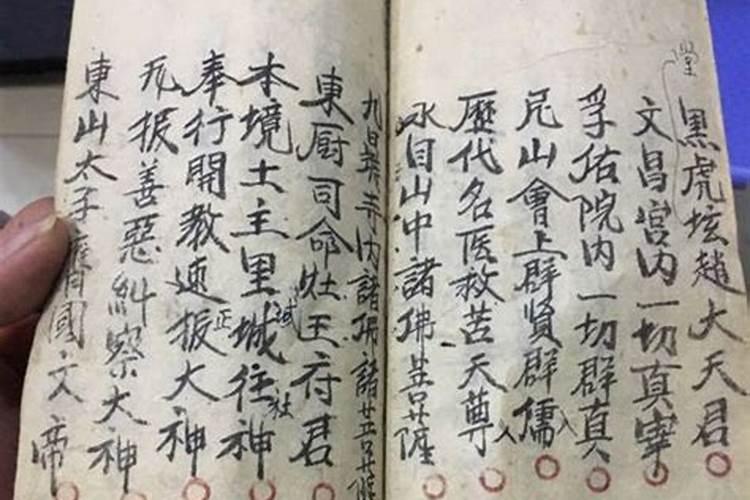 堂
黑虎坛趙大天君
文昌宮内一切真宰
孚佑院内一切群真
尼山會上群賢群儒
歷代名医救苦天尊
水目山中諸佛
九鼎寺内諸佛諸
東厨司命灶王府君
本境土主里城徃神
域
社
奉行開教速振大神
正
振善惡糾察大神
東山太子育國文帝